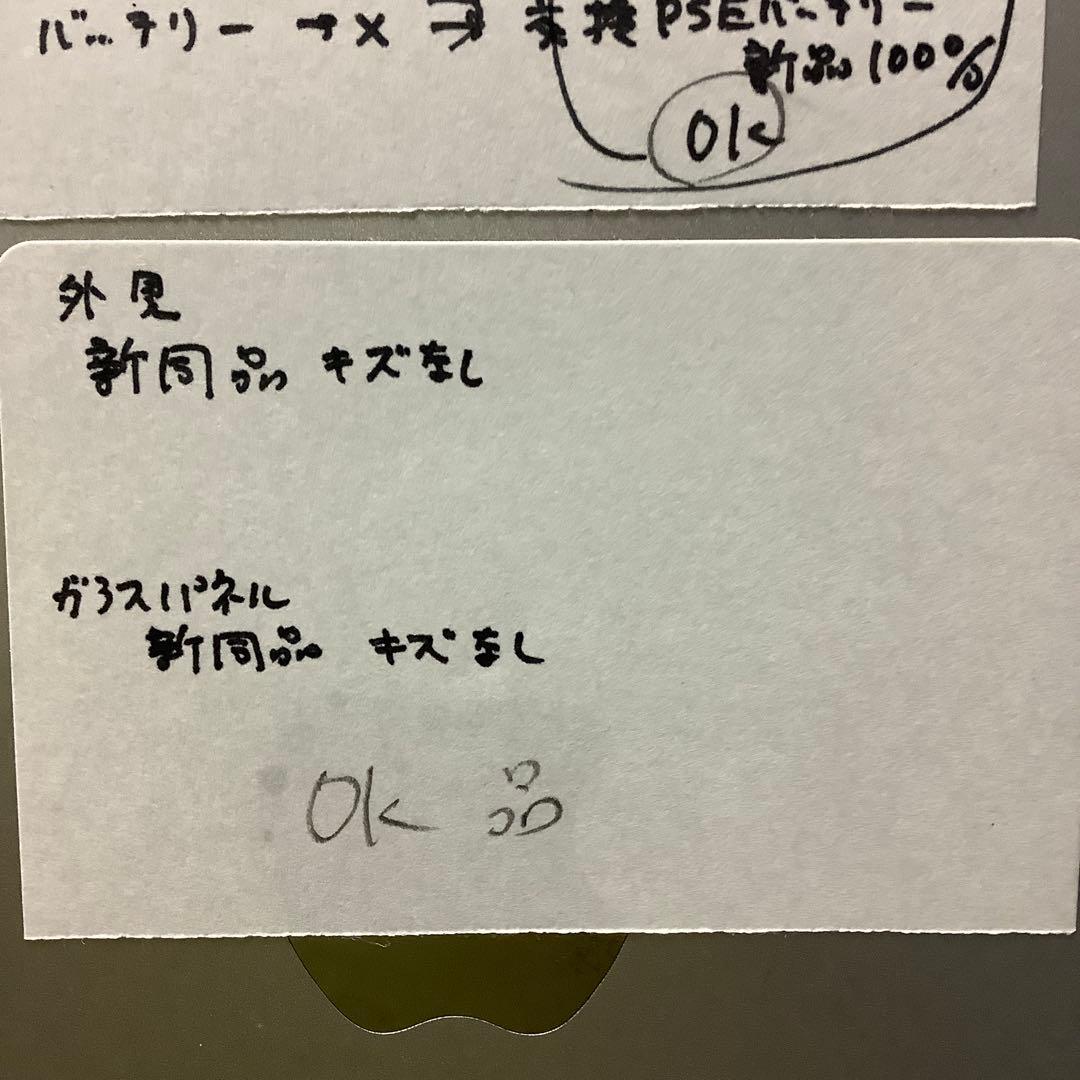 バッテリー → × ⇒ 交換PSEバッテリー
新品100%
OK
外見
新同品 キズなし
ガラスパネル
新同品 キズなし
OK 品